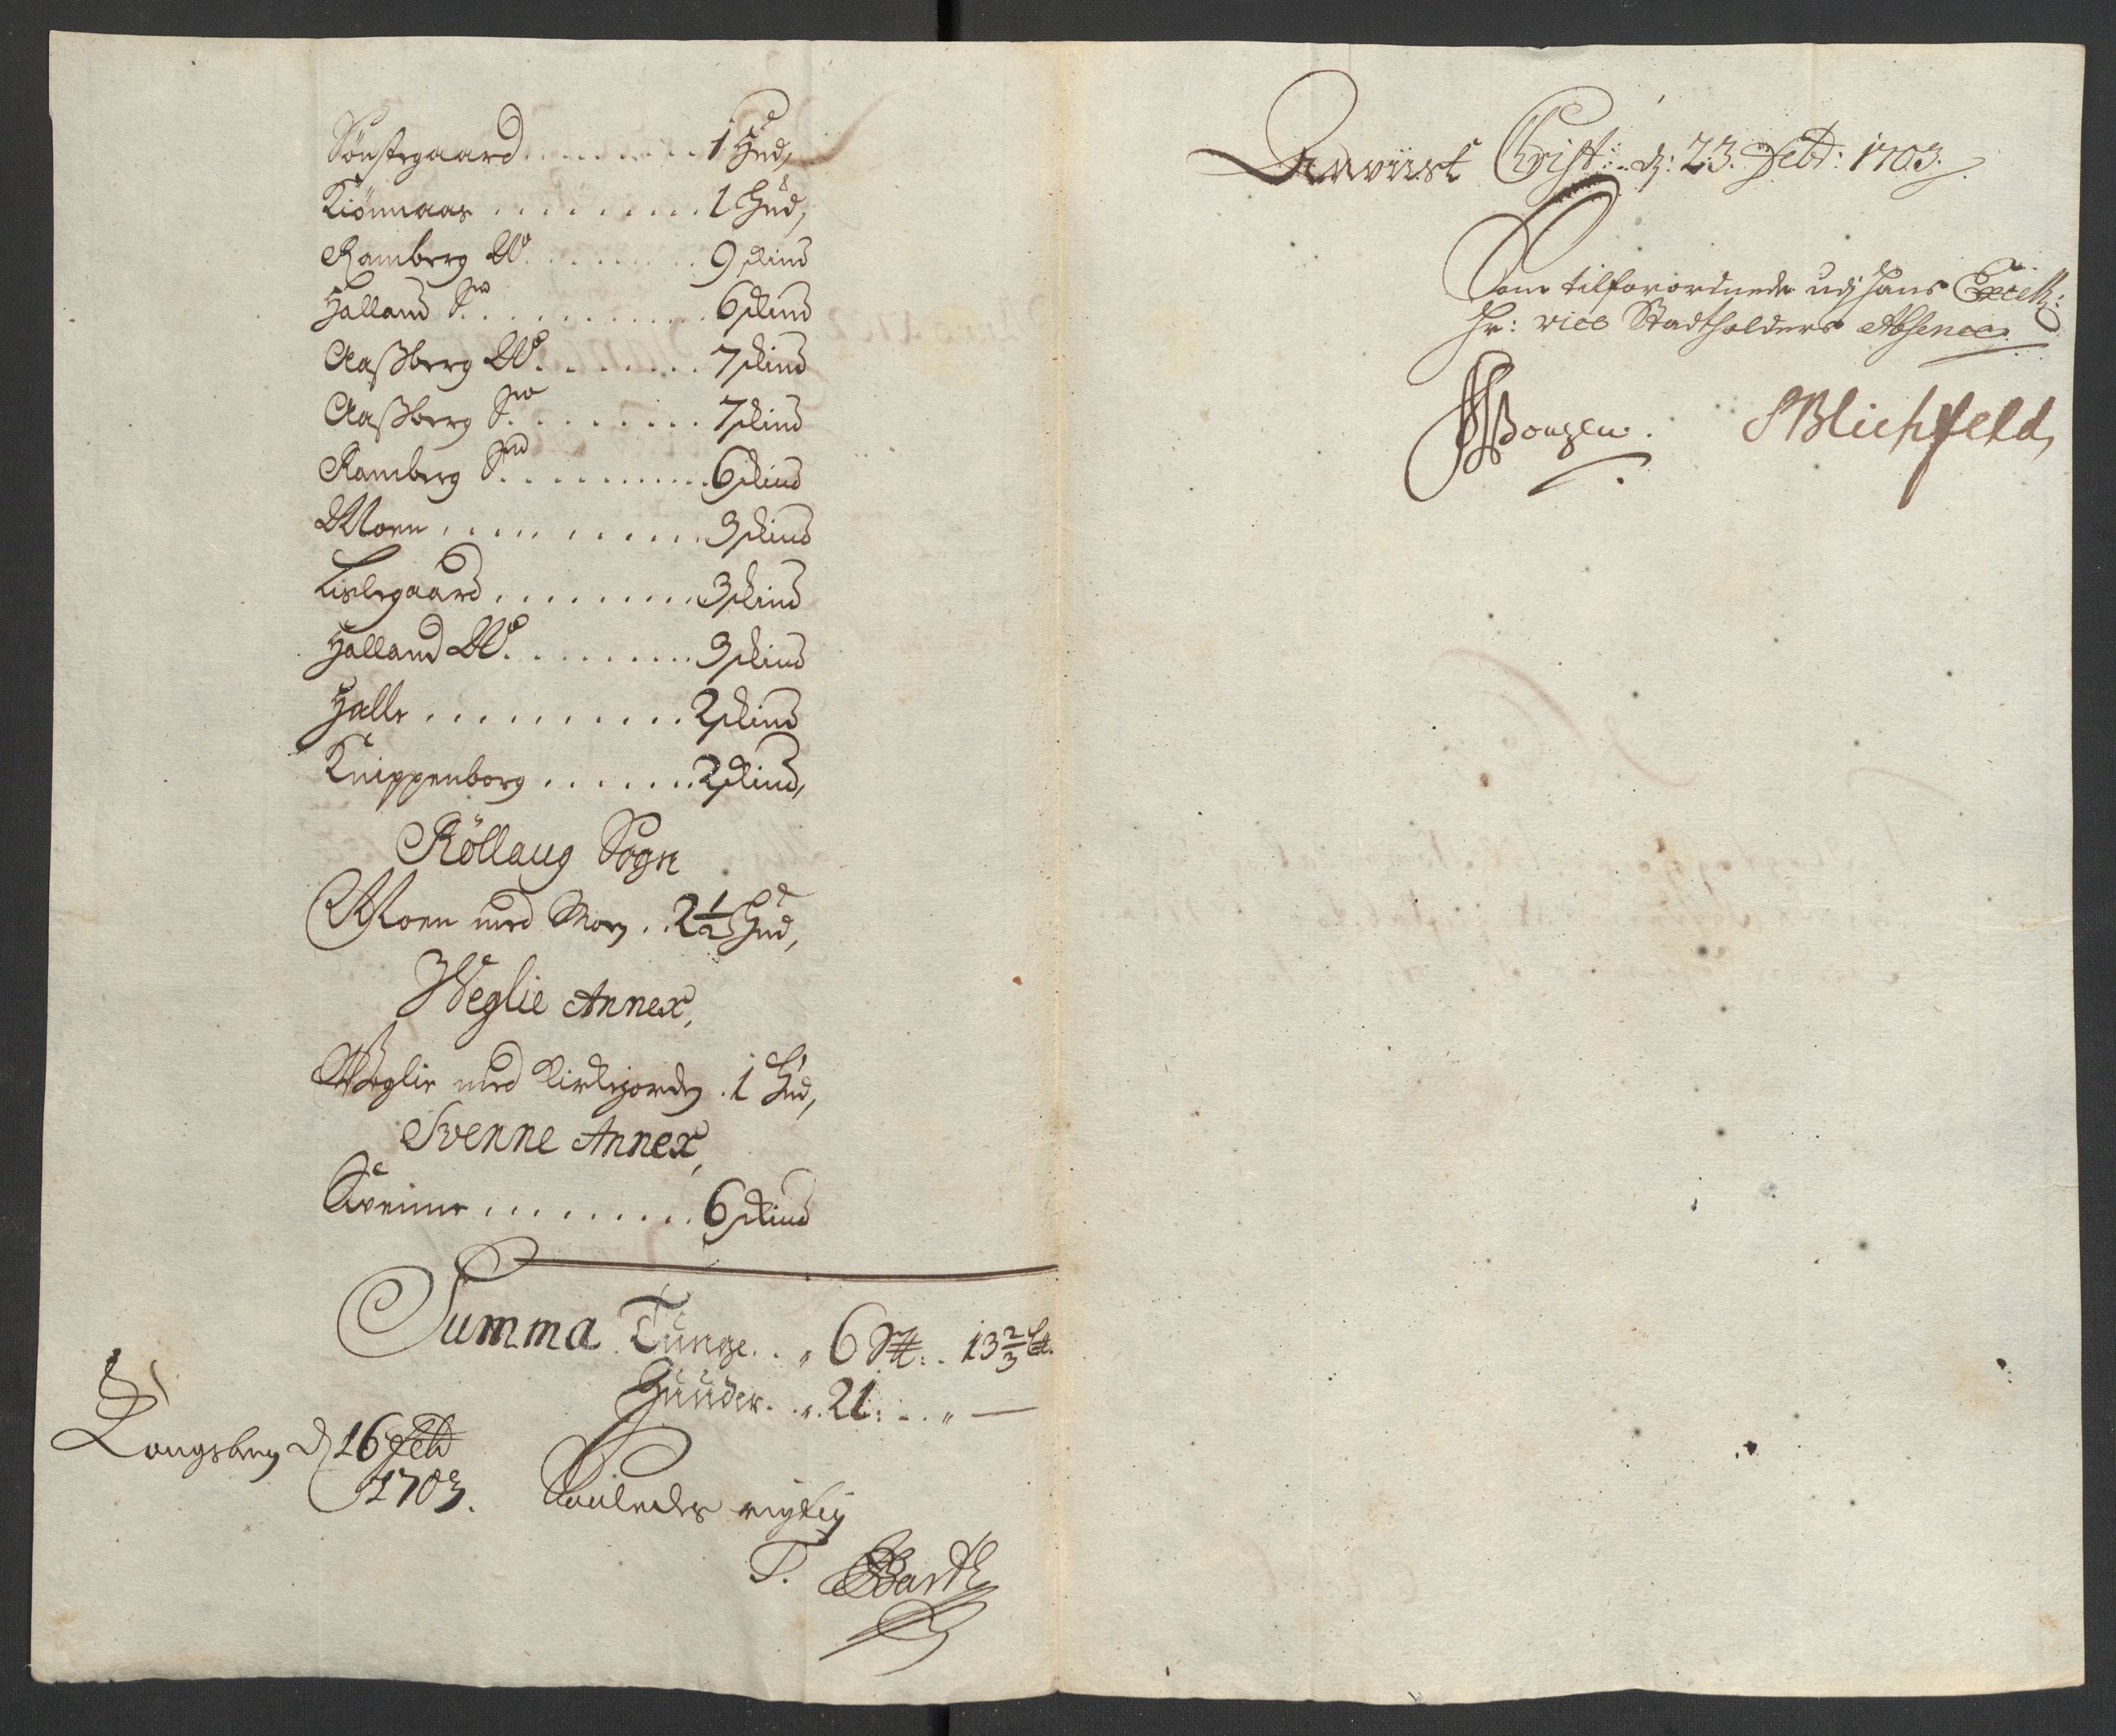 Sønstegaard . . . . . . . . 1 Hud,
Kiønnaas . . . . . . . . . 1 Hud,
Ramberg W. . . . . . . . 9 skind
Halland S. . . . . . . . . . . 6 skind
Aaßberg W. . . . . . . . 7 skind
Aaßberg S. . . . . . . . . 7 skind
Ramberg S. . . . . . . . . . . 6 skind
Moen . . . . . . . . . . . 3 skind
Lislegaard . . . . . . . . . 3 skind
Halland W. . . . . . . . . 3 skind
Halle . . . . . . . . . . 2 skind
Knippenborg . . . . . . . 2 skind,
Röllaug Sogn
Moen med Moen . . 2 1/2 Hud,
Weglie Annex,
Weglie med Kirkejorden . 1 Hud,
Svenne Annex,
Svenne . . . . . . . . . 6 skind
Summa Tunge . . „ 6 S℔: . 13 2/3 ℔.
Huuder . . „ 21: . . „ —
Kongsberg d 16 Feb
1703. Saaledes rigtig
T. Barth
Anviist Christ: d: 23. Feb: 1703.
Som tilforordnede udj Hans Excell:
Hr: vice Stadtholders Absence.
Blichfeld,